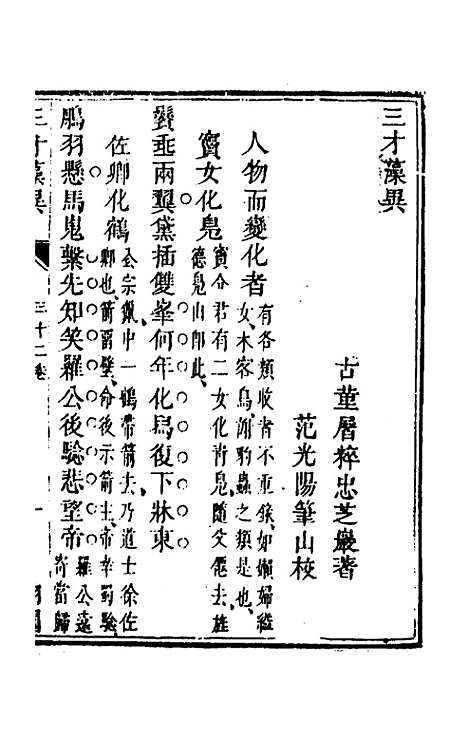 三才藻異
古董屠粹忠芝巖著
范光陽筆山校
人物而變化者
有各類收者不重錄如嬾婦縊
女木客鳥謝豹蟲之類是也
竇女化鳧
竇令君有二女化青鳧隨父僊去旌
德鳧山卽此
鬢垂兩翼黛插雙峯何年化舃復下牀東
佐卿化鶴
玄宗獵中一鶴帶箭去乃道士徐佐
卿也箭畱壁命後示箭主帝幸蜀驗
鵰羽懸馬鬼繫先知笑羅公後驗悲望帝
羅公遠
寄當歸
三才藻異
三十二卷
一